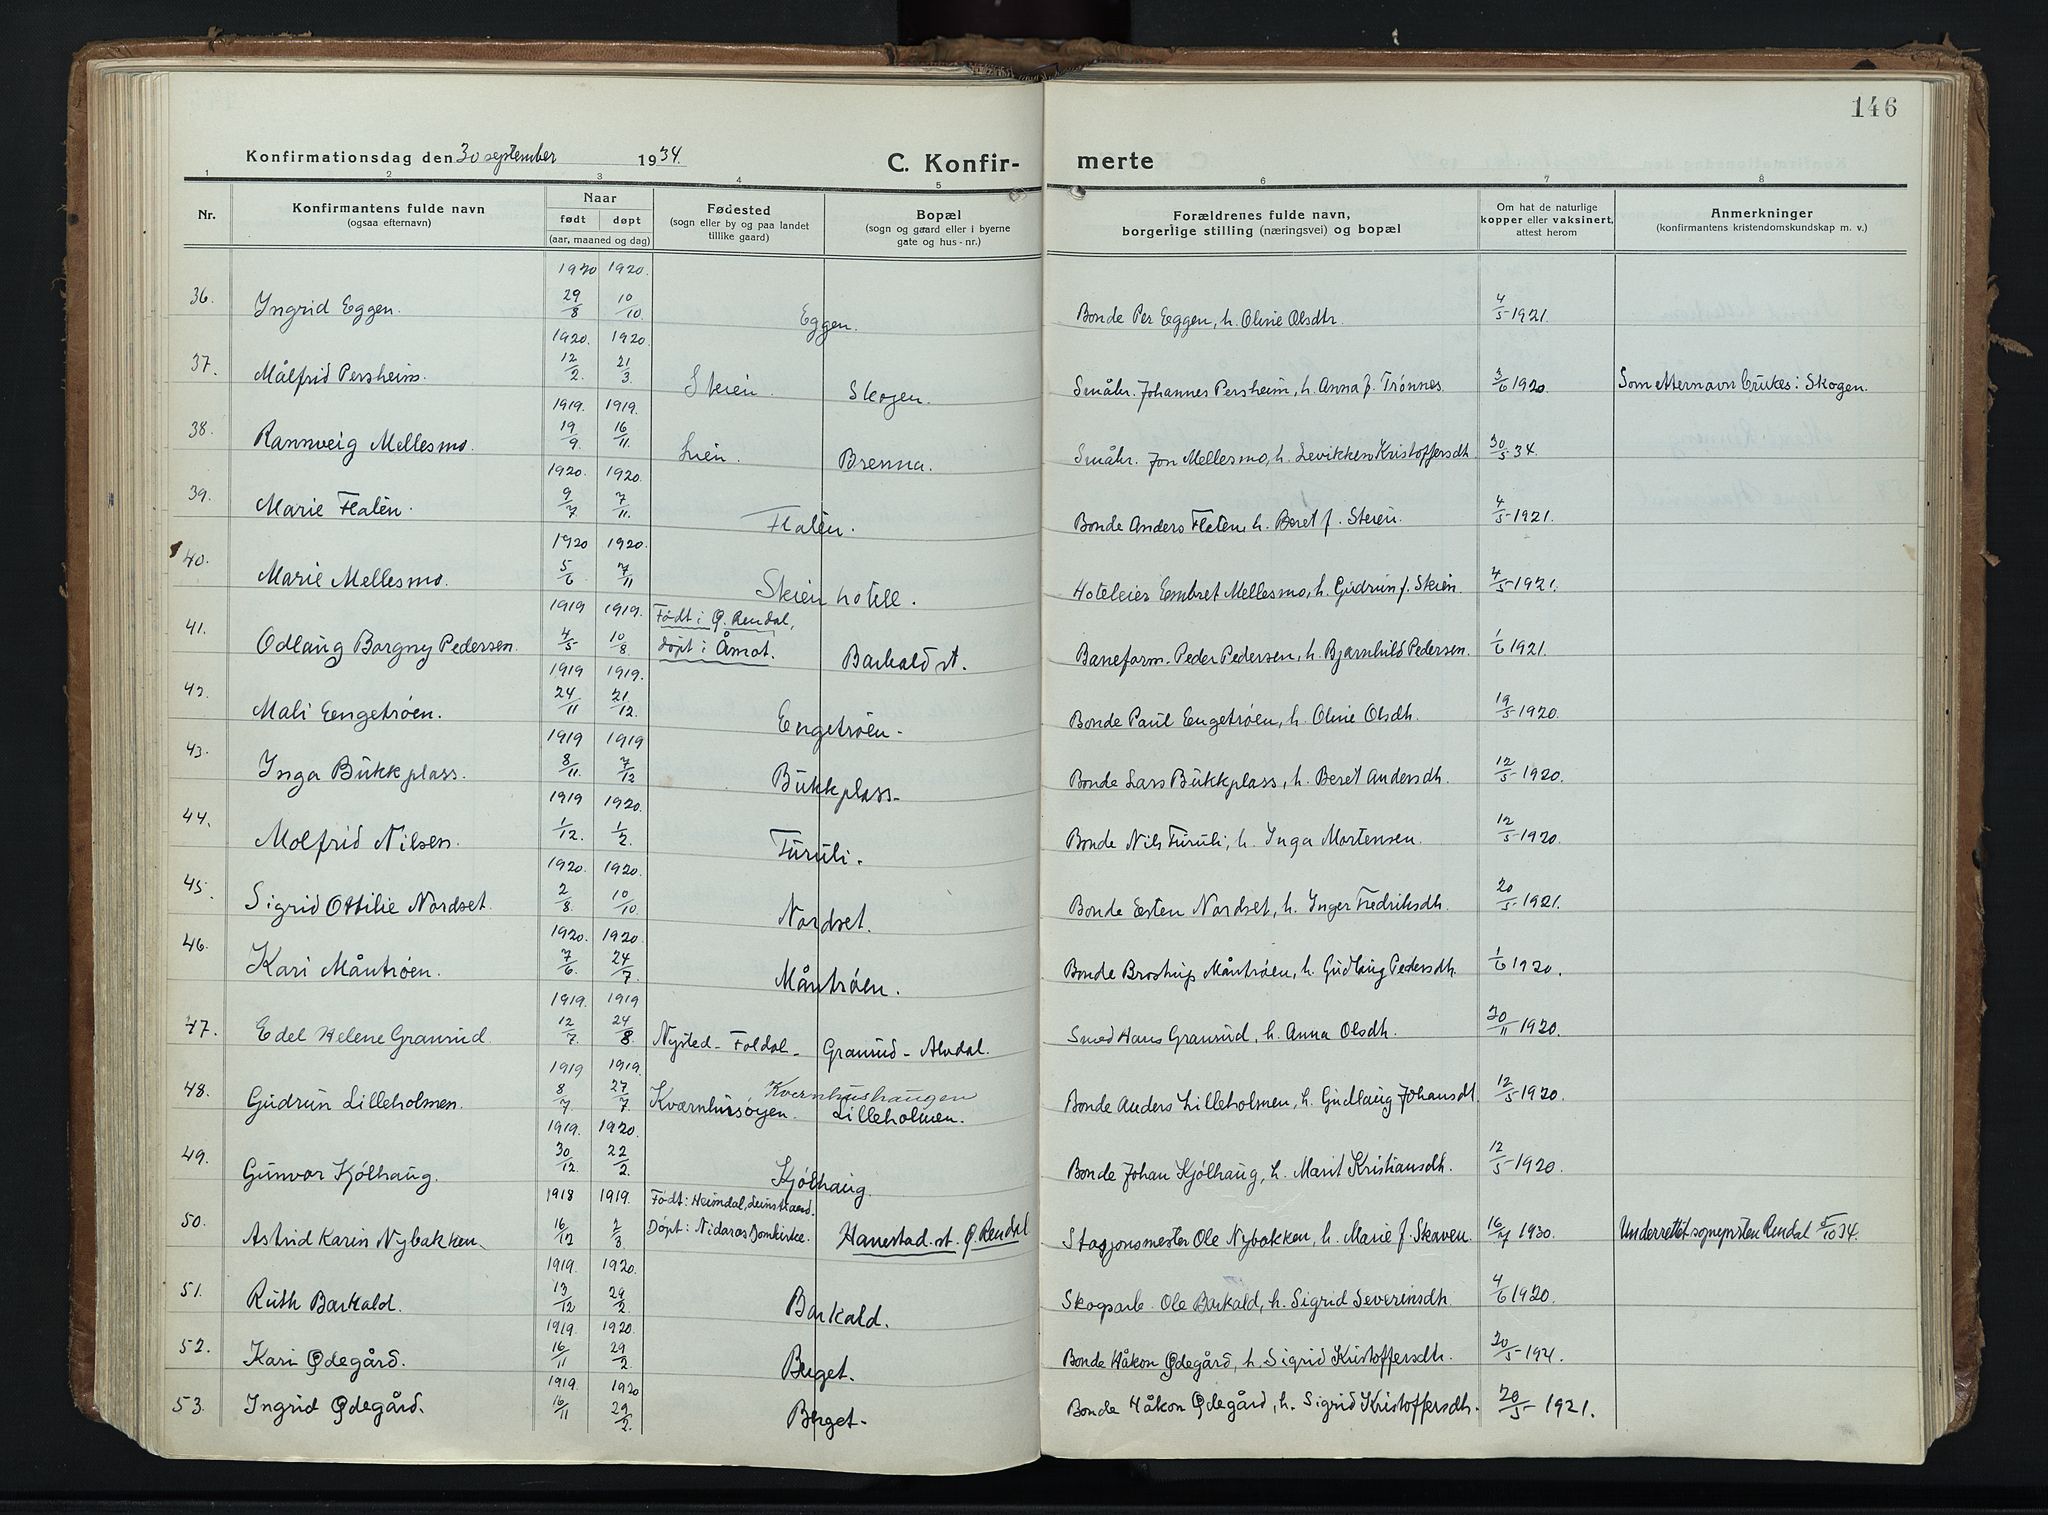 146
Konfirmationsdag den 30 september 1934. C. Konfir- merte
1 2 3 4 5 6 7 8
Nr. Konfirmantens fulde navn (ogsaa efternavn) Naar født døpt (aar, maaned og dag) Fødested (sogn eller by og paa landet tillike gaard) Bopæl (sogn og gaard eller i byerne gate og hus-nr.) Forældrenes fulde navn, borgerlige stilling (næringsvei) og bopæl Om hat de naturlige kopper eller vaksinert, attest herom Anmerkninger (konfirmantens kristendomskundskap m. v.)
1920 1920.
36. Ingrid Eggen. 29/8 10/10 Eggen. Bonde Per Eggen, h. Oline Olsdtr. 4/5 1921.
1920. 1920.
37. Målfrid Persheim. 12/2. 21/3. Steien. Skogen. Småbr. Johannes Persheim, h. Anna f. Trønnes. 3/6 1920. Som etternavn brukes: Skogen.
1919. 1919.
38. Rannveig Mellesmo. 19/9. 16/11. Lien. Brenna. Småbr. Jon Mellesmo, h. Levikken Kristoffersdh. 30/5 34.
1920. 1920.
39. Marie Flatén. 9/7 7/11. Flatén. Bonde Anders Flaten, h. Beret f. Steien. 4/5 1921.
1920 1920.
40. Marie Mellesmo. 5/6 7/11 Steien hotell. Hoteleier Embret Mellesmo, h. Gudrun f. Steien. 4/5 1921.
1919 1919. Født i Ø. Rendal,
41. Odlaug Borgny Pedersen. 4/5 10/8 døpt i Åmot. Barkald st. Baneform. Peder Pedersen, h. Bjarnhild Pedersen. 1/6 1921.
1919 1919.
42. Mali Eengetrøen. 24/11 21/12. Eengetrøen. Bonde Paul Eengetrøen, h. Oline Olsdh. 19/5 1920.
1919 1919
43. Inga Bukkplass. 8/11. 7/12 Bukkplass. Bonde Lars Bukkplass, h. Beret Andersdh. 12/5 1920.
1919 1920.
44. Molfrid Nilsen. 1/12. 1/2. Furuli. Bonde Nils Furuli, h. Inga Mortensen. 12/5 1920.
1920. 1920.
45. Sigrid Ottilie Nordset. 2/8. 10/10 Nordset. Bonde Esten Nordset, h. Inger Fredriksdh. 20/5 1921.
1920. 1920.
46. Kari Måntrøen. 7/6. 24/7. Måntrøen. Bonde Brostrup Måntrøen, h. Gudlaug Pedersdh. 1/6 1920.
1919. 1919
47. Edel Helene Granrud. 12/7. 24/8. Nysted - Foldal - Granrud - Alvdal. Smed Hans Granrud, h. Anna Olsdh. 20/11 1920.
1919 1919. Kvernhushaugen
48. Gudrun Lilleholmen. 8/7. 27/7 Kvernhusøyen. Lilleholmen. Bonde Anders Lilleholmen, h. Gudlaug Johansdh. 12/5 1920.
1919. 1920.
49. Gunvor Kjølhaug. 30/12. 22/2. Kjølhaug. Bonde Johan Kjølhaug, h. Marit Kristiansdh. 12/5 1920.
1918 1919. Født: Heimdal, Leinstrand.
50. Astrid Karin Nybakken. 16/12 2/3 Døpt: Nidaros Domkirke. Hanestad st. Ø. Rendal Stasjonsmester Ole Nybakken, h. Marie f. Skaven. 1930. Underrettet sognepresten Rendal 5/10 34.
1919. 1920.
51. Ruth Barkald. 13/12 29/2. Barkald. Skogsarb. Ole Barkald, h. Sigrid Severinsdh. 4/6 1920.
1919. 1920.
52. Kari Ødegård. 16/11 29/2 Berget. Bonde Håkon Ødegård, h. Sigrid Kristoffersdh. 20/5 1921.
1919. 1920
53. Ingrid Ødegård. 16/11 29/2. Berget. Bonde Håkon Ødegård, h. Sigrid Kristoffersdh. 20/5 1921.